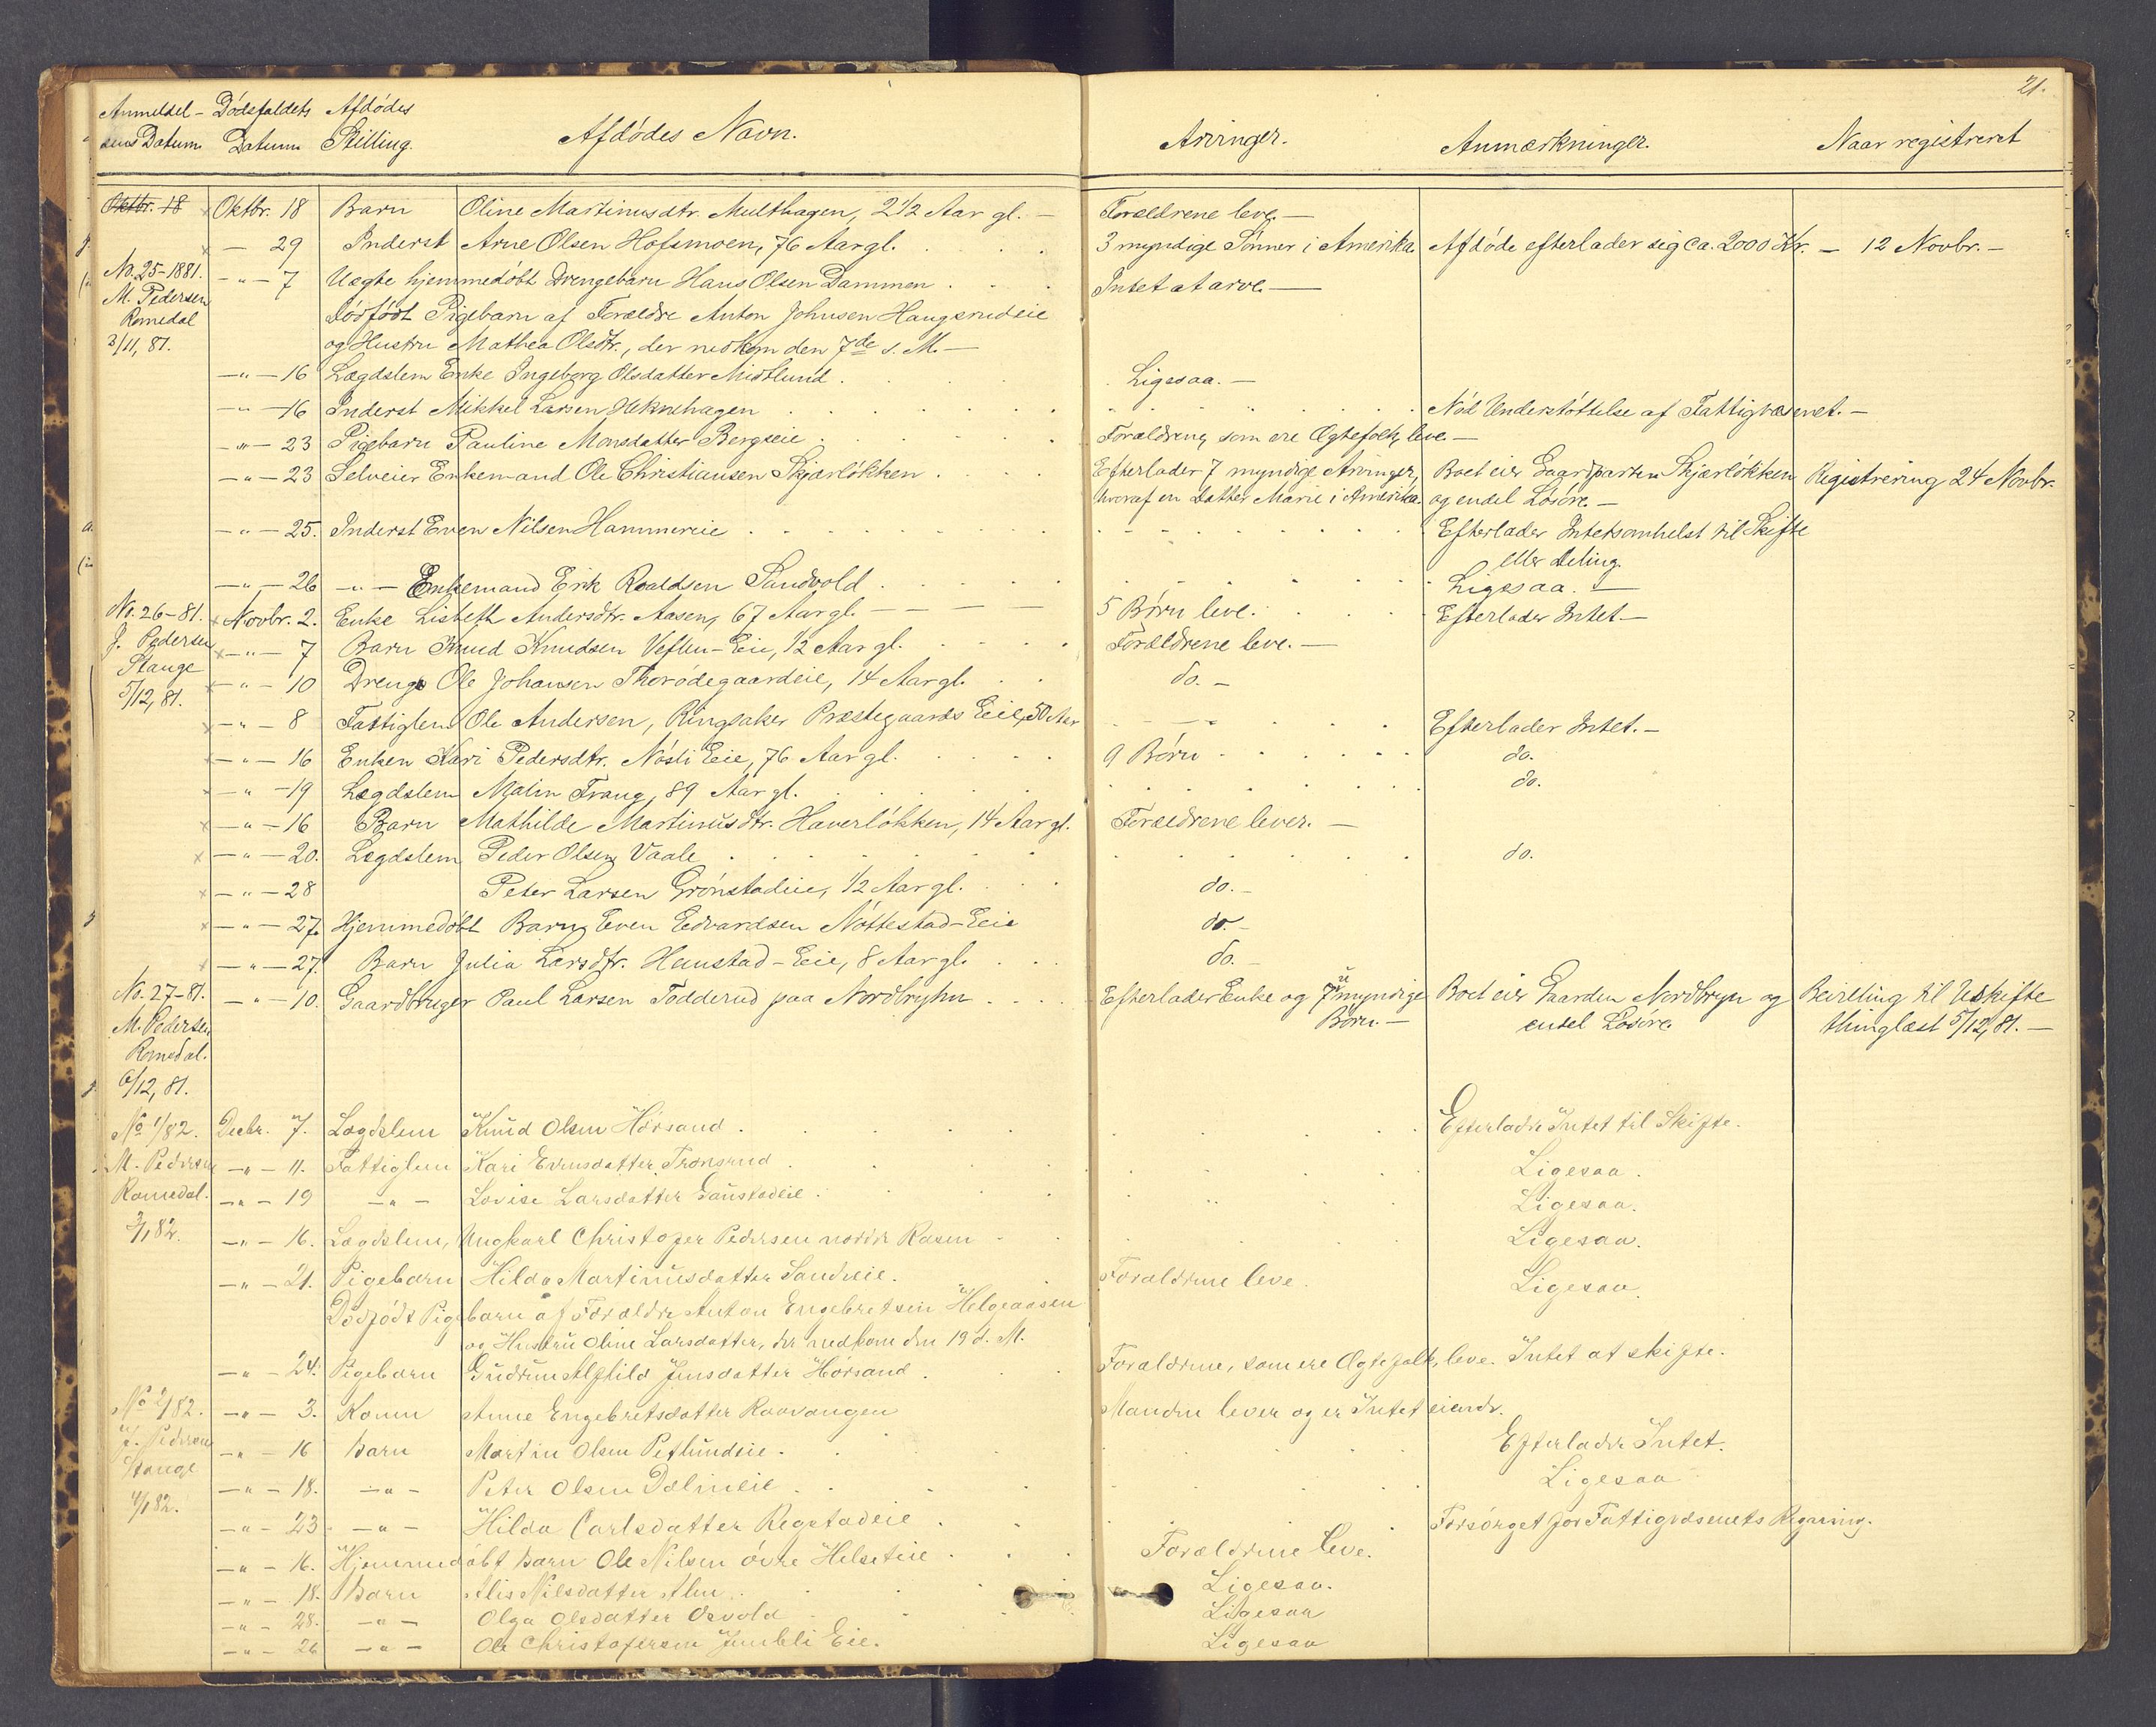 21.
Anmeldel- Dødsfaldets Afdødes
sens Datum Datum Stilling. Afdødes Navn. Arvinger. Anmærkninger. Naar registreret
Oktbr. 18 Oktbr. 18 Barn Oline Martinusdtr. Multhagen, 2 1/2 Aar gl. — Forældrene leve. —
— 29 Inderst Arne Olsen Hofsmoen, 76 Aar gl. 3 myndige Sønner i Amerika. Afdøde efterlader sig ca. 2000 Kr. — 12 Novbr. —
No. 25-1881. —"— 7 Uægte hjemmedøbt Drengebarn Hans Olsen Dammen Intet at arve. —
M. Pedersen
Romedal Dødfødt Pigebarn af Forældre Anton Johnsen Haugsrudeie
3/11, 81. og Hustru Mathea Olsdtr., der nedkom den 7de s. M. —
—"— 16 Lægdslem Enke Ingeborg Olsdatter Midtlund Ligesaa. —
—"— 16 Inderst Mikkel Larsen Heknehagen Nød Understøttelse af Fattigvæsenet. —
—"— 23 Pigebarn Pauline Monsdatter Bergseie Forældrene, som ere Ægtefolk, leve —
—"— 23 Selveier Enkemand Ole Christiansen Skjærløkken Efterlader 7 myndige Arvinger, Boet eier Gaardparten Skjærløkken Registrering 24 Novbr.
hvoraf en Datter Marie i Amerika. og endel Løsøre. —
—"— 25. Inderst Even Nilsen Hammereie Efterlader Intetsomhelst til Skifte
eller Deling.
—"— 26 —"— Enkemand Erik Roaldsen Sandvold Ligesaa. —
No. 26-81. Novbr. 2. Enke Lisbeth Andersdtr. Aasen, 67 Aar gl. 5 Børn leve. Efterlader Intet —
J. Pedersen —"— 7 Barn Knud Knudsen Veflen-Eie, 1/2 Aar gl. Forældrene leve. —
Stange
5/12, 81. —"— 10 Dreng Ole Johansen Thorødegaardeie, 14 Aar gl. do. —
—"— 8 Fattiglem Ole Andersen, Ringsaker Præstegaards Eie, 50 Aar Efterlader Intet. —
—"— 16 Enken Kari Pedersdtr. Nøsli Eie, 76 Aar gl. 9 Børn do.
—"— 19 Lægdslem Malin Frang, 89 Aar gl. do.
—"— 16 Barn Mathilde Martinusdtr. Haverløkken, 14 Aar gl. Forældrene lever. —
—"— 20. Lægdslem Peder Olsen Vaale do.
—"— 28 Peter Larsen Grønstadeie, 1/2 Aar gl. do. —
—"— 27. Hjemmedøbt Barn Even Edvardsen Nøttestad-Eie do. —
—"— 27. Barn Julia Larsdtr. Hemstad-Eie, 8 Aar gl. do. —
No. 27-81. —"— 10. Gaardbruger Paul Larsen Todderud paa Nordbryhn Efterlader Enke og 7 umyndige Boet eier Gaarden Nordbryn og Bevilling til Uskifte
M. Pedersen Børn. — endel Løsøre. thinglæst 5/12, 81. —
Romedal.
6/12, 81.
No 1/82. Decbr. 7. Lægdslem Knud Olsen Hørsand Efterlader Intet til Skifte.
M. Pedersen —"— 11. Fattiglem Kari Evensdatter Tronsrud Ligesaa.
Romedal. —"— 19 —"— Lovise Larsdatter Gaustadeie Ligesaa.
3/1, 82. —"— 16. Lægdslem, Ungkarl Christofer Pedersen nordre Rasen Ligesaa.
—"— 21. Pigebarn Hilda Martinusdatter Sandeie. Forældrene leve. Ligesaa.
Dødfødt Pigebarn af Forældre Anton Engebretsen Helgeaasen
og Hustru Oline Larsdatter, der nedkom den 19 d. M.
—"— 24. Pigebarn Gudrun Alfhild Jensdatter Hørsand Forældrene, som ere Ægtefolk, leve. Intet at skifte.
No 2/82. —"— 3. Kone Anne Engebretsdatter Raavangen Manden lever og er Intet eiende.
J. Pedersen —"— 16 Barn Martin Olsen Petlundeie. Efterlader Intet.
Stange —"— 18. —"— Peter Olsen Dælineie Ligesaa
4/1 82. —"— 23 —"— Hilda Carlsdatter Regstadeie Forsørget for Fattigvæsenets Regning.
—"— 16. Hjemmedøbt Barn Ole Nilsen øvre Helseteie Forældrene leve.
—"— 18. Barn Alis Nilsdatter Alm Ligesaa.
—"— 28. —"— Olga Olsdatter Osvold Ligesaa
—"— 26 —"— Ole Christofersen Jembli Eie. Ligesaa